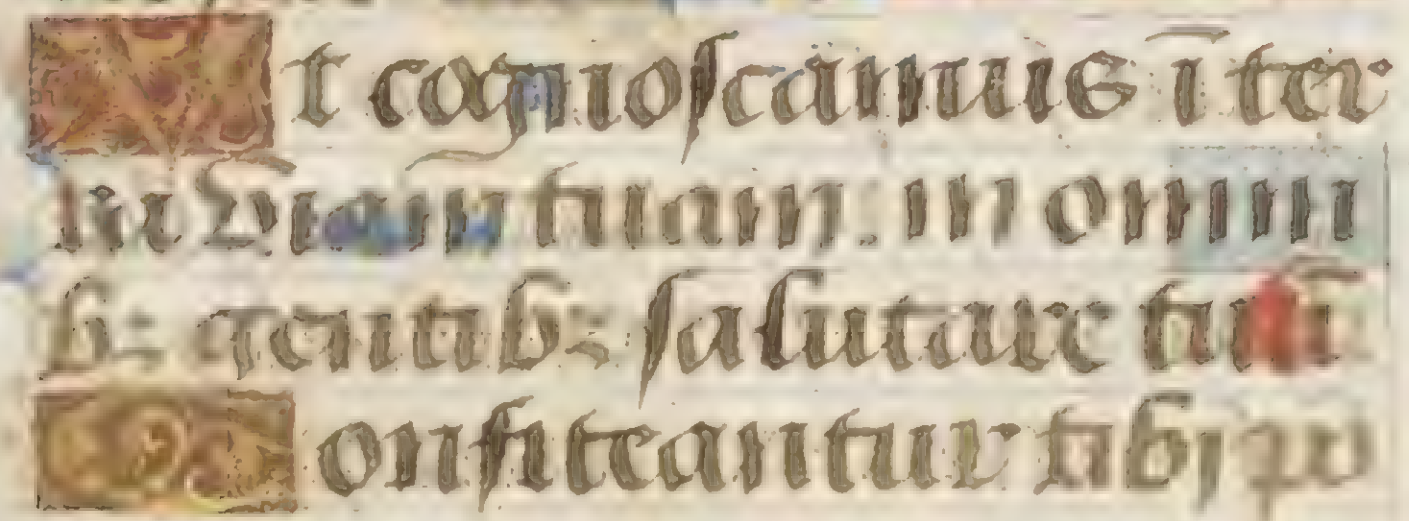 Ut cognoscamus ī ter
ra viam̄ tuam: in omni
b: gentib: salutare tuū
Confiteantur tibi po